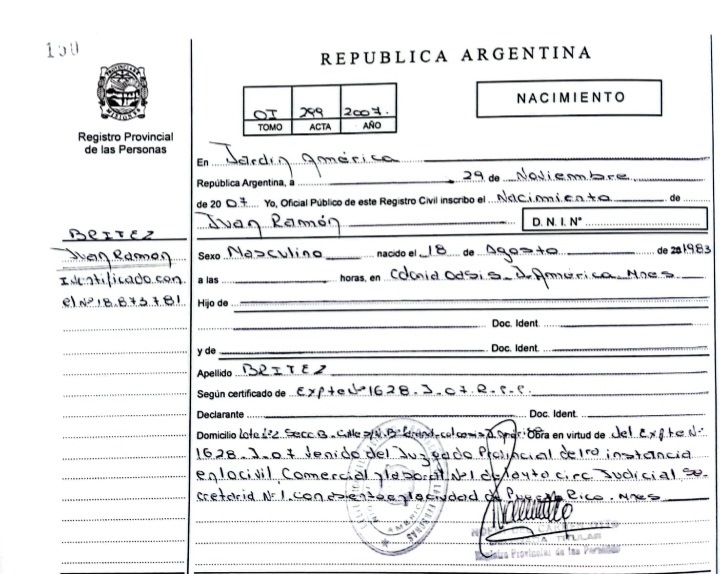 150
REPUBLICA ARGENTINA
PROVINCIA DE MISIONES
Registro Provincial
de las Personas
OI 299 2007.
TOMO ACTA AÑO
NACIMIENTO
En Jardín América
República Argentina, a 29 de Noviembre
de 2007 Yo, Oficial Público de este Registro Civil inscribo el Nacimiento de
Juan Ramón D. N. I. N°
BRITEZ
Juan Ramon
Identificado con
el Nº 18.873.781
Sexo Masculino nacido el 18 de Agosto de 1983
a las horas, en Colonia Oasis J. América Mnes
Hijo de
Doc. Ident.
y de Doc. Ident.
Apellido BRITEZ
Según certificado de Expte Nº 1628 J 07 R.P.P.
Declarante Doc. Ident.
Domicilio Lote Secc B. Calle S/N Bº J. América Obra en virtud de del Expte Nº
1628 J 07 venido del Juzgado Provincial de 1ra instancia
en lo civil, Comercial y laboral Nº 1 de la 4ta circ. Judicial Se
cretaria Nº 1. con asiento en la ciudad de Puerto Rico. Mnes
TITULAR
Registro Provincial de las Personas